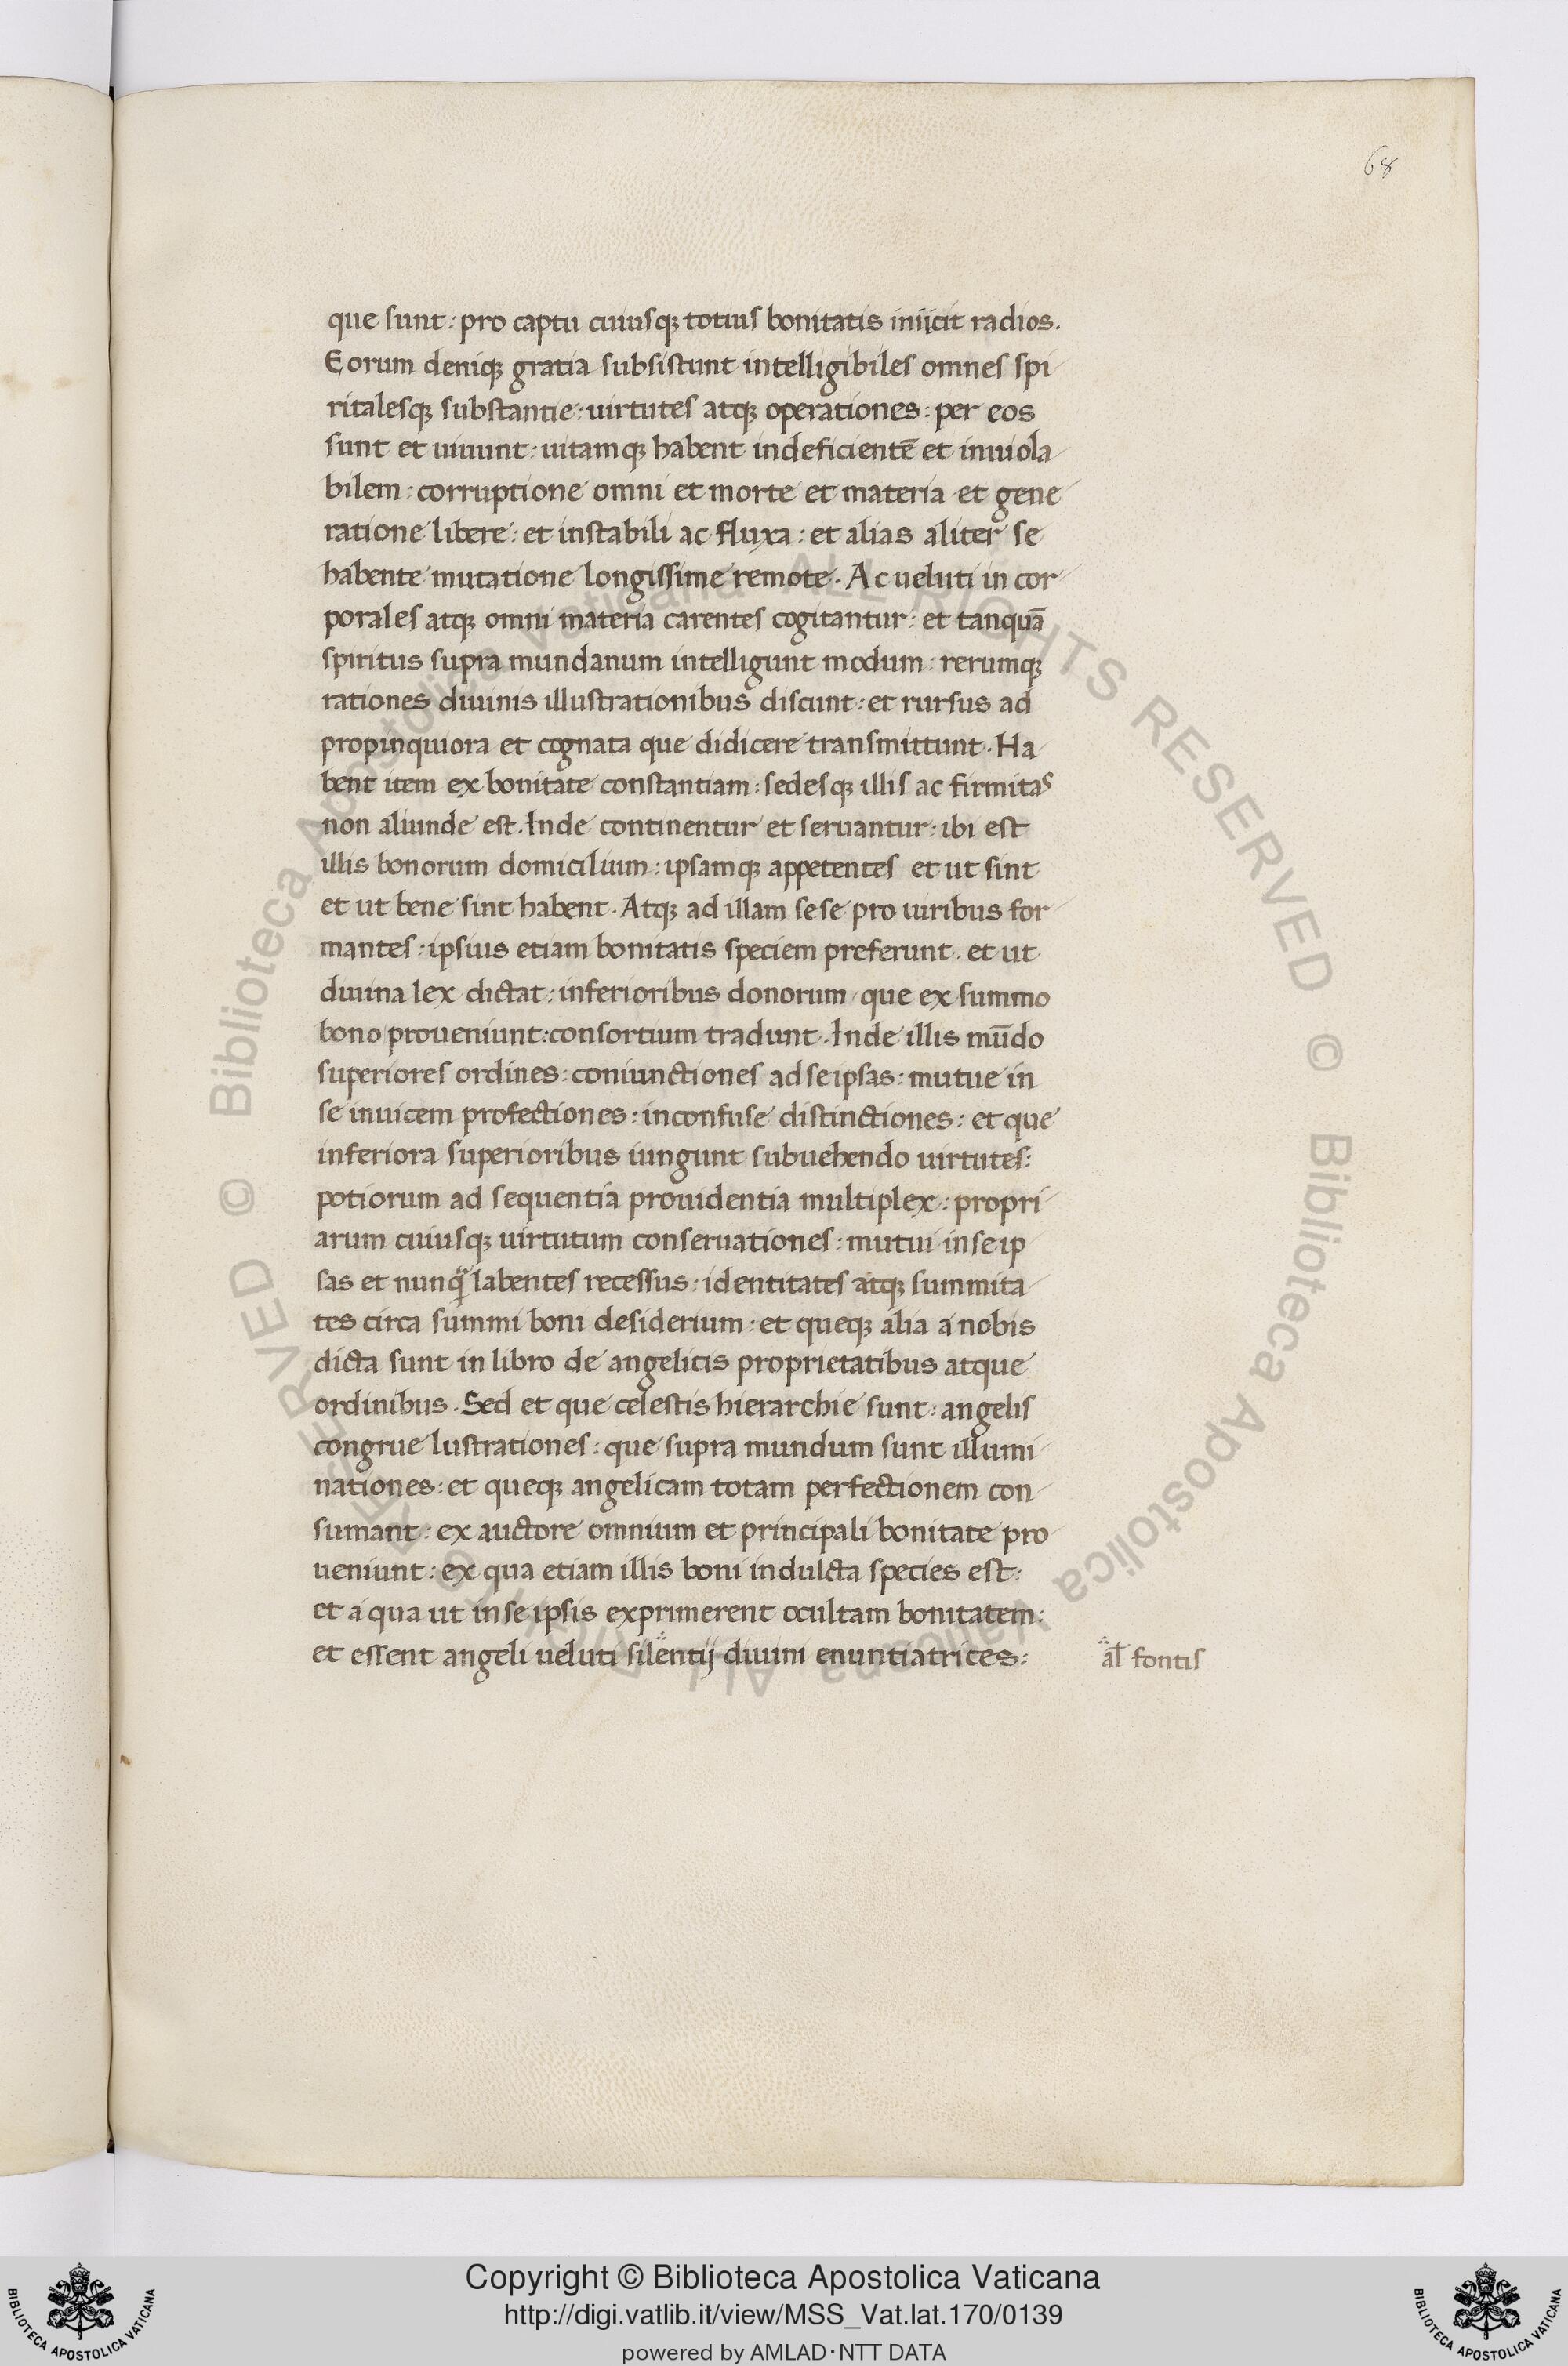 68
que sunt: pro captu cuiusq; totius bonitatis iniicit radios.
Eorum deniq; gratia subsistunt intelligibiles omnes spi
ritalesq; substantie: uirtutes atq; operationes: per eos
sunt et uiuunt: uitamq; habent indeficientē et inuiola
bilem: corruptione omni et morte et materia et gene
ratione libere: et instabili ac fluxa: et alias aliter se
habente mutatione longissime remote. Ac ueluti in cor
porales atq; omni materia carentes cogitantur: et tanquā
spiritus supra mundanum intelligunt modum: rerumq;
rationes diuinis illustrationibus discunt: et rursus ad
propinquiora et cognata que didicere transmittunt. Ha
bent item ex bonitate constantiam: sedesq; illis ac firmitas
non aliunde est. Inde continentur et seruantur: ibi est
illis bonorum domicilium: ipsamq; appetentes et ut sint
et ut bene sint habent. Atq; ad illam sese pro uiribus for
mantes: ipsius etiam bonitatis speciem preferunt. et ut
diuina lex dictat: inferioribus donorum que ex summo
bono proueniunt: consortium tradunt. Inde illis mūdo
superiores ordines: coniunctiones ad se ipsas: mutue in
se inuicem profectiones: inconfuse distinctiones: et que
inferiora superioribus iungunt subuehendo uirtutes:
potiorum ad sequentia prouidentia multiplex: propri
arum cuiusq; uirtutum conseruationes: mutui in se ip
sas et nunq̄ labentes recessus: identitates atq; summita
tes circa summi boni desiderium: et queq; alia a nobis
dicta sunt in libro de angelicis proprietatibus atque
ordinibus. Sed et que celestis hierarchie sunt: angelis
congrue lustrationes: que supra mundum sunt illumi
nationes: et queq; angelicam totam perfectionem con
sumant: ex auctore omnium et principali bonitate pro
ueniunt: ex qua etiam illis boni indulcta species est:
et a qua ut in se ipsis exprimerent ocultam bonitatem:
et essent angeli ueluti silentij diuini enuntiatrices:
al̄ fontis
Copyright © Biblioteca Apostolica Vaticana
http://digi.vatlib.it/view/MSS_Vat.lat.170/0139
powered by AMLAD·NTT DATA
BIBLIOTECA APOSTOLICA VATICANA
BIBLIOTECA APOSTOLICA VATICANA
© Biblioteca Apostolica Vaticana ALL RIGHTS RESERVED
© Biblioteca Apostolica Vaticana ALL RIGHTS RESERVED